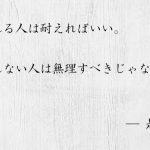 る人は耐えればいい。
ない人は無理すべきじゃな
―